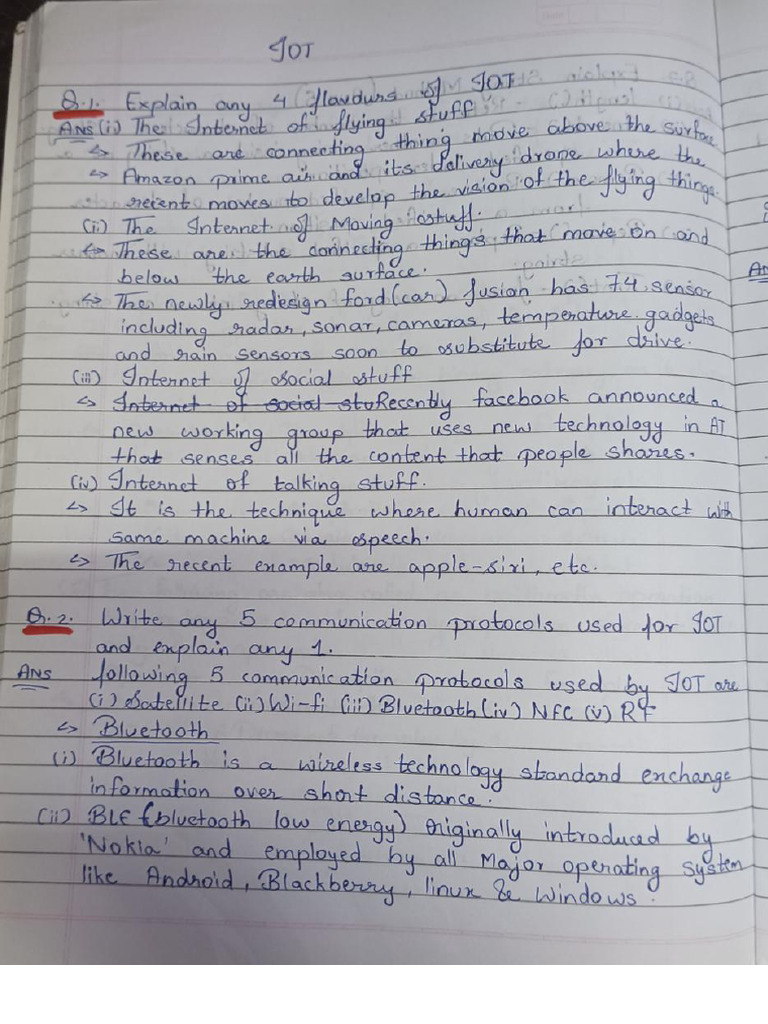 IOT
Q.1. Explain any 4 flavours of IOT
Ans (i) The Internet of flying stuff
↳ These are connecting thing move above the surface
↳ Amazon prime air and its delivery drone where the
recent moves to develop the vision of the flying things.
(ii) The Internet of Moving stuff.
↳ These are the connecting things that move on and
below the earth surface.
↳ The newly redesign ford (car) fusion has 74 sensor
including radar, sonar, cameras, temperature gadgets
and rain sensors soon to substitute for drive.
(iii) Internet of social stuff
↳ Internet of social stu Recently facebook announced a
new working group that uses new technology in AI
that senses all the content that people shares.
(iv) Internet of talking stuff.
↳ It is the technique where human can interact with
same machine via speech.
↳ The recent example are apple-siri, etc.
Q.2. Write any 5 communication protocols used for IOT
and explain any 1.
Ans following 5 communication protocols used by IOT are
(i) Satellite (ii) Wi-fi (iii) Bluetooth (iv) NFC (v) RF
↳ Bluetooth
(i) Bluetooth is a wireless technology standard exchange
information over short distance.
(ii) BLE (bluetooth low energy) Originally introduced by
'Nokia' and employed by all Major operating system
like Android, Blackberry, linux & Windows.
An